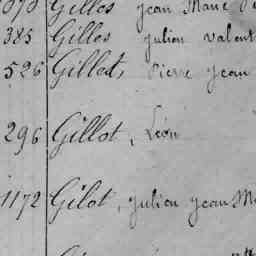 Gilles Jean Marie
385 Gilles Julien Valent
526 Gillet, Pierre Jean
296 Gillot, Léon
1172 Gilot, Julien Jean Ma